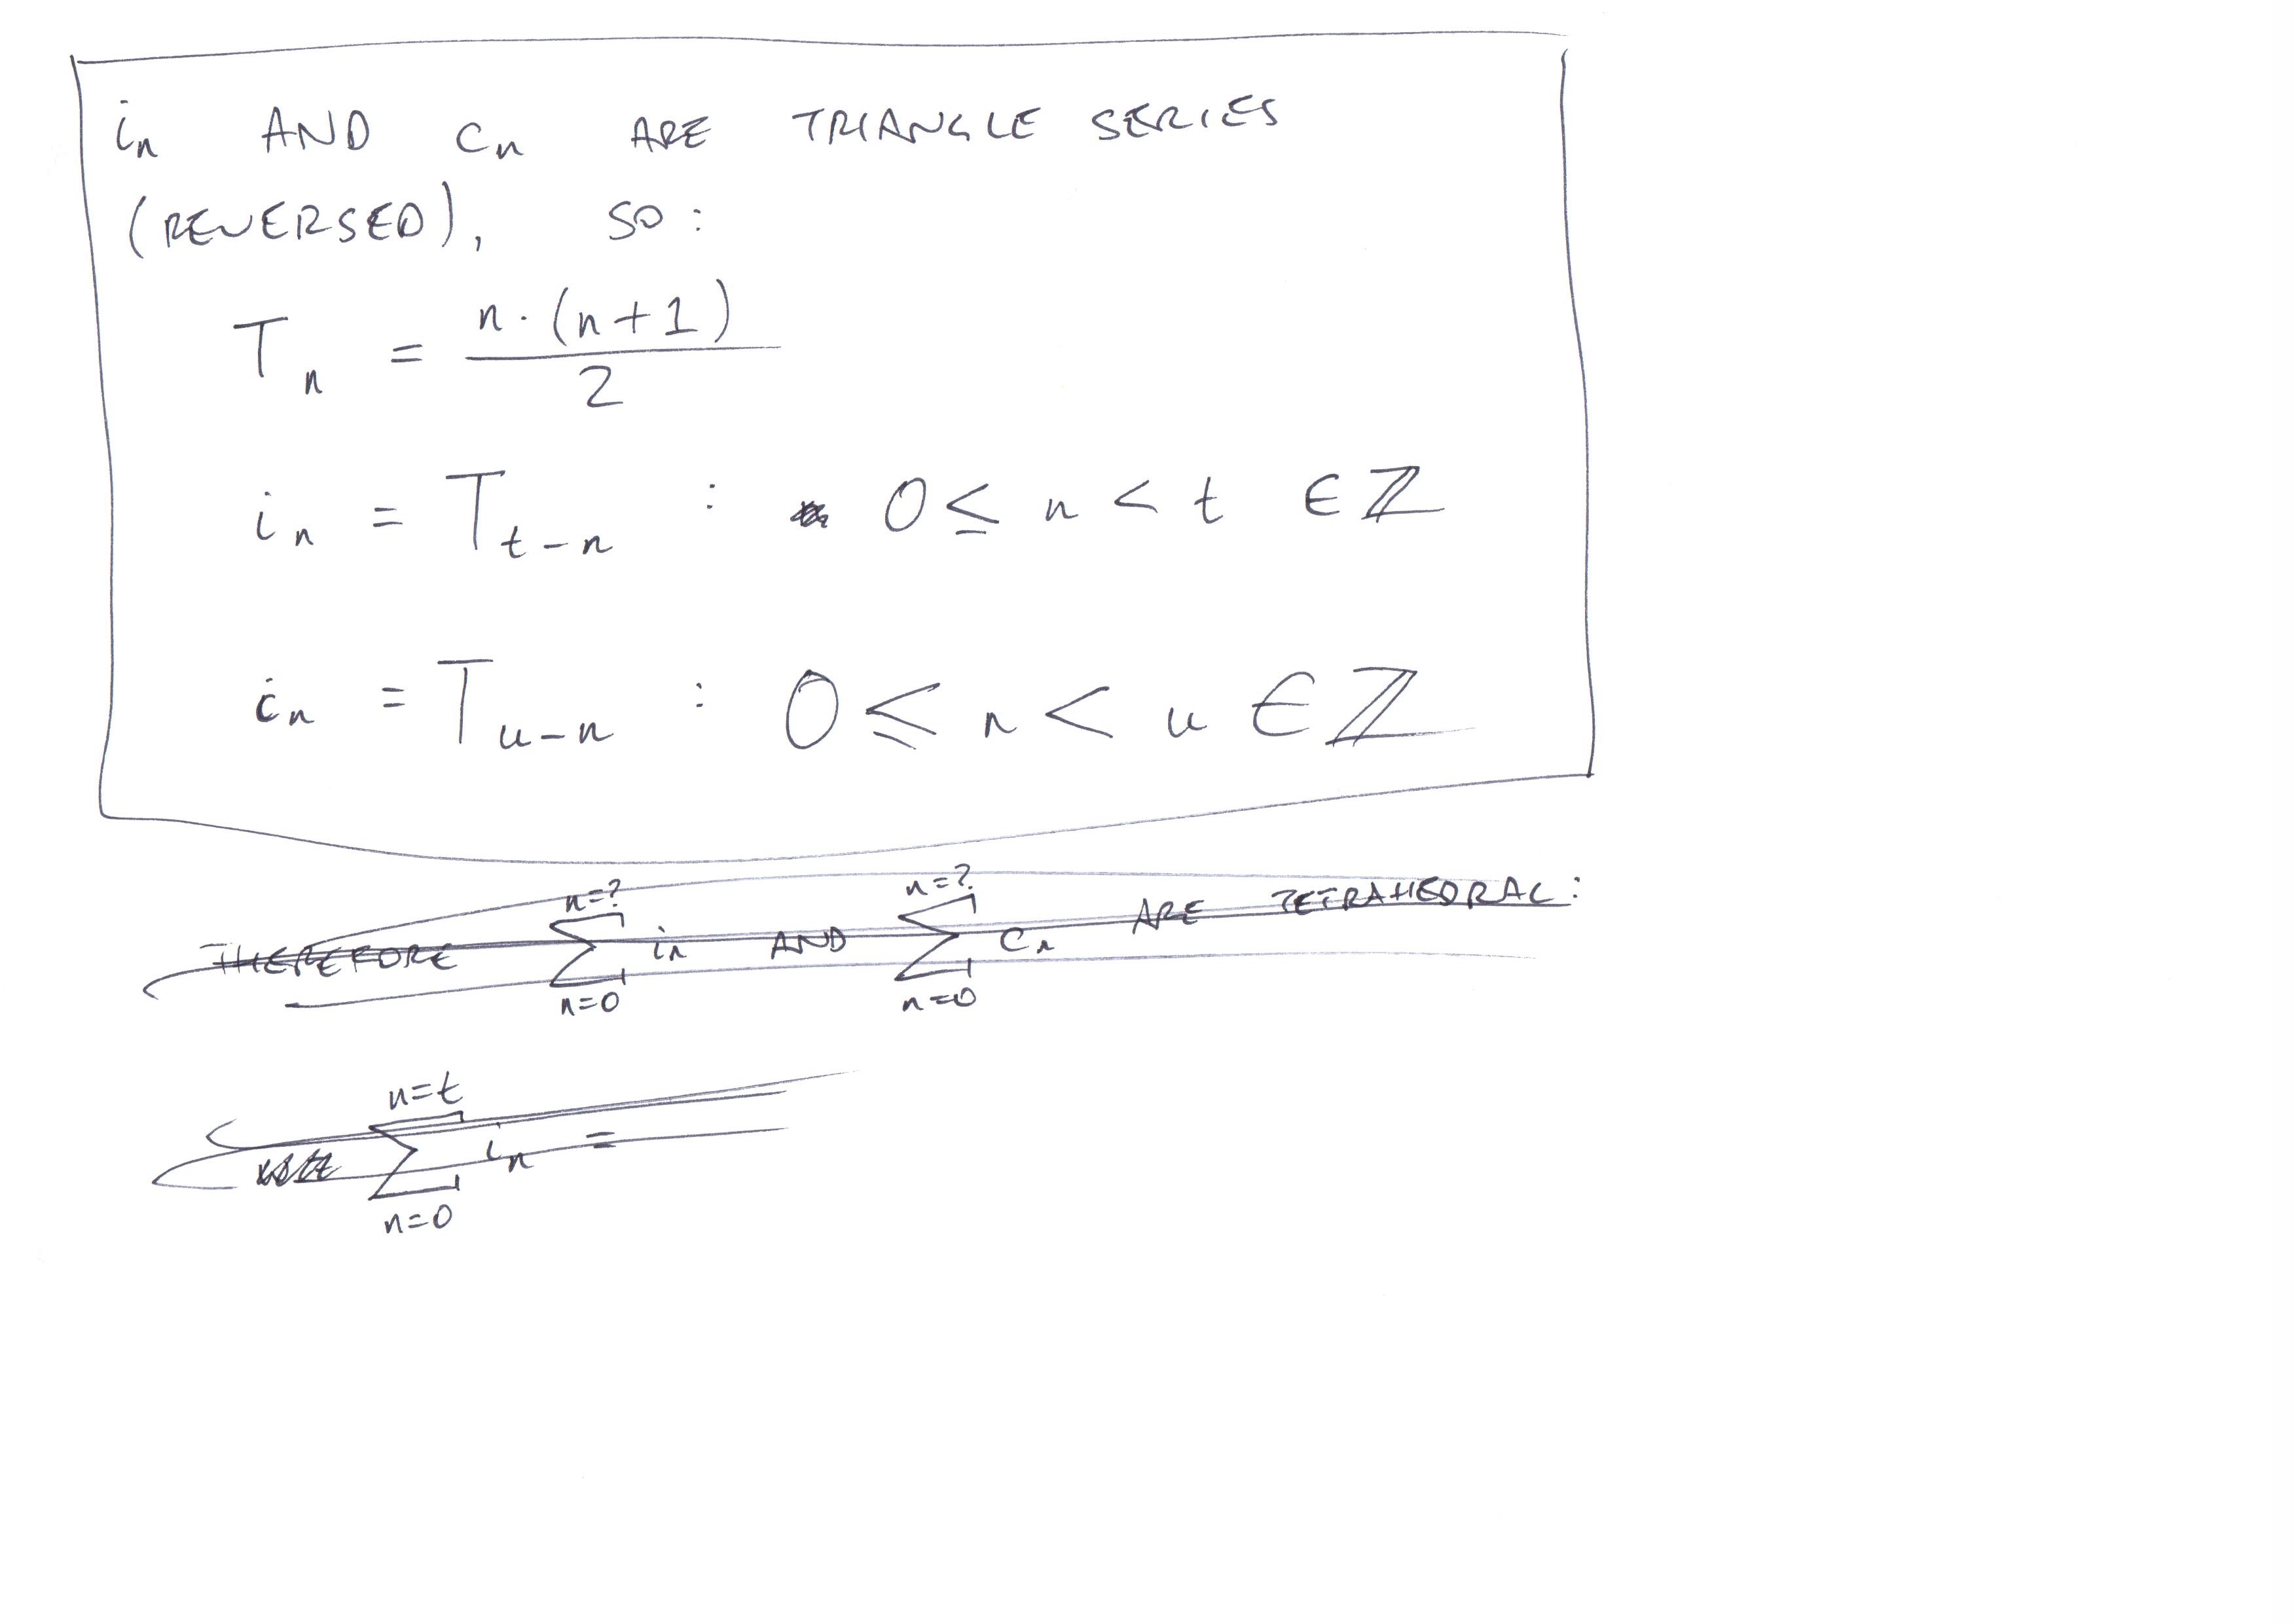 iₙ AND cₙ ARE TRIANGLE SERIES
(REVERSED), SO:
Tₙ = n·(n+1) / 2
iₙ = T_{t-n} : 0 ≤ n < t ∈ ℤ
cₙ = T_{u-n} : 0 ≤ n < u ∈ ℤ
THEREFORE ∑_{n=0}^{n=?} iₙ AND ∑_{n=0}^{n=?} cₙ ARE TETRAHEDRAL:
∑_{n=0}^{n=t} iₙ =